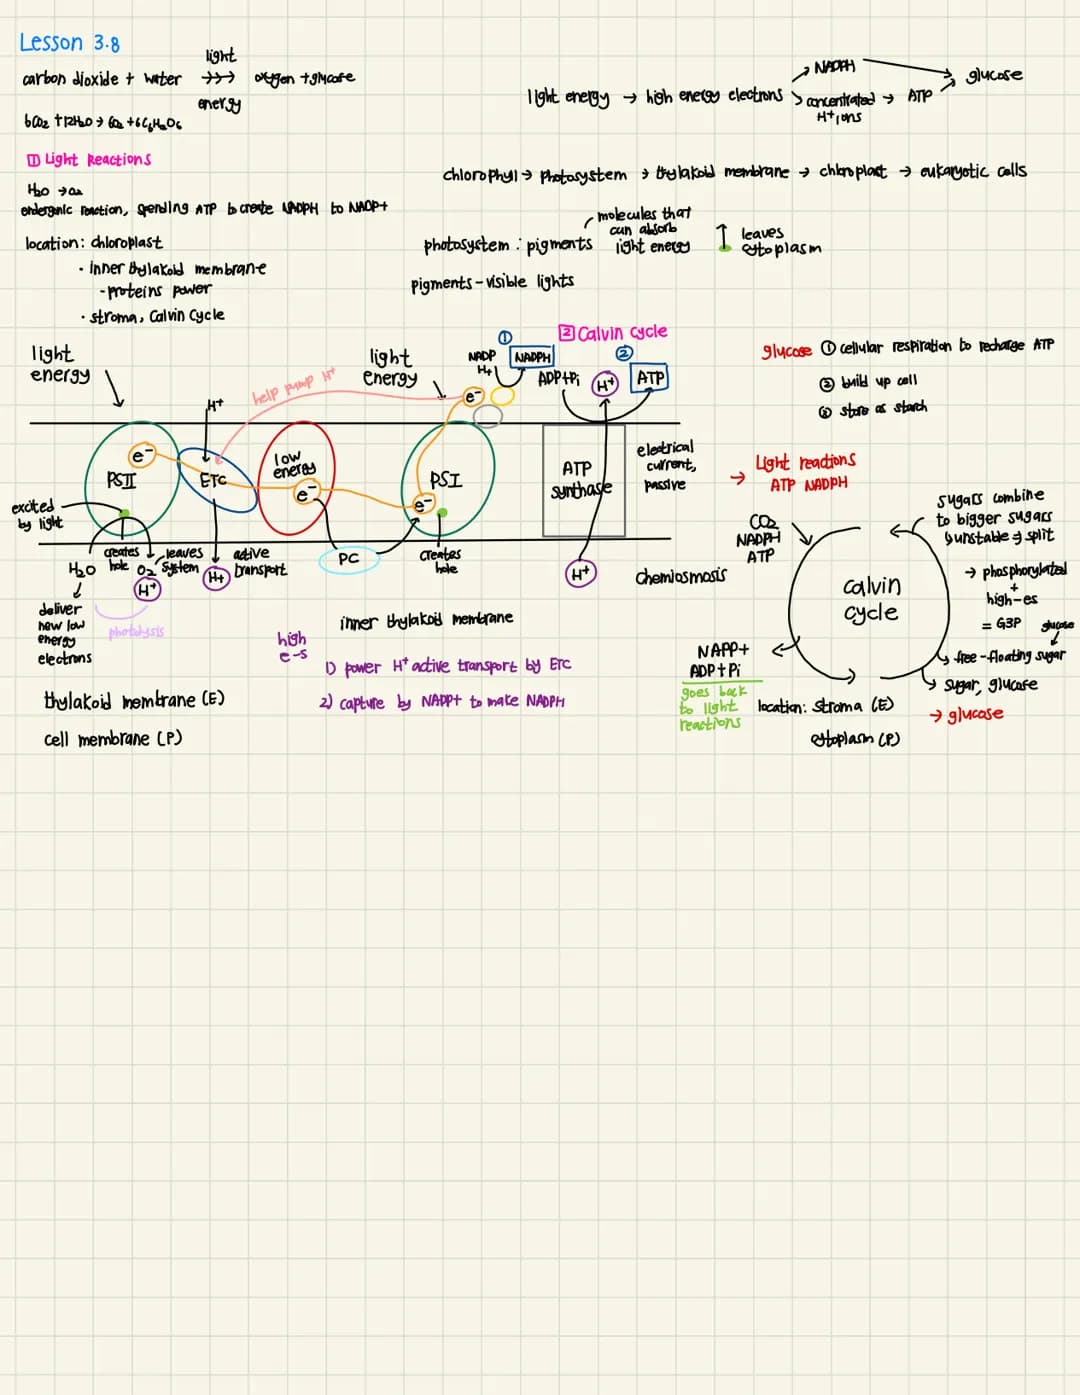 Lesson 3.8
carbon dioxide + water →→→ oxygen + glucose
light
energy
6CO2 + 12H2O → 6O2 + 6C6H12O6
light energy → high energy electrons
→ NADPH
→ concentrated H+ ions → ATP
→ glucose
1 Light Reactions
H2O → O2
endergonic reaction, spending ATP to create NADPH to NADP+
location: chloroplast
· inner thylakoid membrane
- proteins power
· stroma, Calvin Cycle
chlorophyll → photosystem → thylakoid membrane → chloroplast → eukaryotic cells
photosystem : pigments
molecules that
can absorb
light energy
leaves
cytoplasm
pigments - visible lights
light
energy
H+
help pump H+
light
energy
NADP
H+
1
NADPH
2 Calvin cycle
2
ADP+Pi
H+
ATP
glucose 1 cellular respiration to recharge ATP
2 build up cell
3 store as starch
e-
PSII
ETC
low
energy
e-
e-
PSI
e-
ATP
synthase
electrical
current,
passive
→ Light reactions
ATP NADPH
excited
by light
H2O
creates
hole
O2
H+
leaves
system
H+
active
transport
PC
creates
hole
H+
chemiosmosis
deliver
new low
energy
electrons
photolysis
inner thylakoid membrane
high
e-s
1) power H+ active transport by ETC
2) capture by NADP+ to make NADPH
thylakoid membrane (E)
cell membrane (P)
CO2
NADPH
ATP
calvin
cycle
sugars combine
to bigger sugars
unstable → split
→ phosphorylated
+
high-es
= G3P
glucose
free-floating sugar
sugar, glucose
→ glucose
NAPP+
ADP+Pi
goes back
to light
reactions
location: stroma (E)
cytoplasm (P)